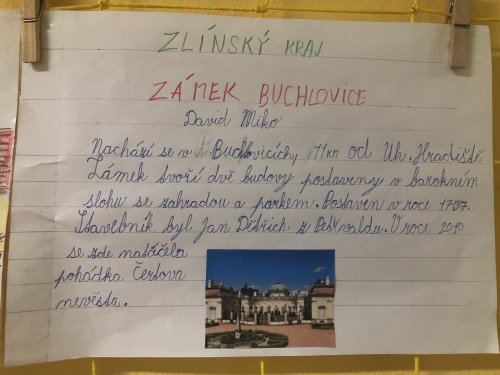 ZLÍNSKÝ KRAJ
ZÁMEK BUCHLOVICE
David Miko
Nachází se v Buchlovicích, 11 km od Uh. Hradiště
Zámek tvoří dvě budovy postaviny v barokním
slohu se zahradou a parkem. Postaven v roce 1707.
Stavebník byl Jan Dětřich z Petřvaldu. V roce 2010
se zde natáčela
pohádka Čertova
nevěsta.